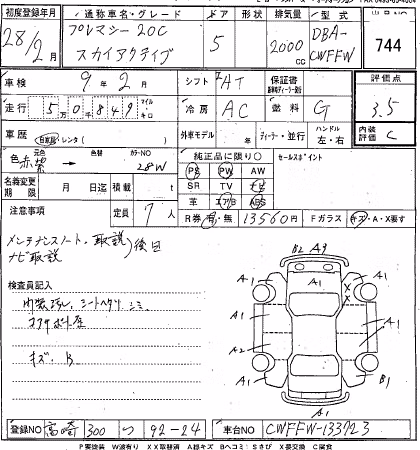 初度登録年月 通称車名・グレード ドア 形状 排気量 型式 744
28年2月 プレマシー 20C スカイアクティブ 5 2000cc DBA-CWFFW
車検 9年2月 シフト AT 保証書 評価点 3.5
走行 5万0千849 マイル キロ 冷房 AC 燃料 G 内装 C
車歴 自家用・レンタ( ) 外車モデル 年 ディーラー・並行 ハンドル 左・右
色 赤紫 色替 カラーNO 28W 純正品に限り○ セールスポイント
名義変更期限 月 日迄 積載 t PS PW AW
SR TV ナビ
革 エアB ABS
注意事項 定員 7人 R券 有・無 13560円 Fガラス キズ・A・X要す
メンテナンスノート、取説 後日
ナビ取説
検査員記入
内装汚れ、シートヘタリ、シミ
キズ、B
B2 A9
A1 A1 A1
X
X
A1 A1
A2
A1 B1
A1
登録NO 高崎 300 つ 92-24 車台NO CWFFW-133723
P要塗装 W波有り XX取替済 A線キズ Bヘコミ Sさび X要交換 C腐食